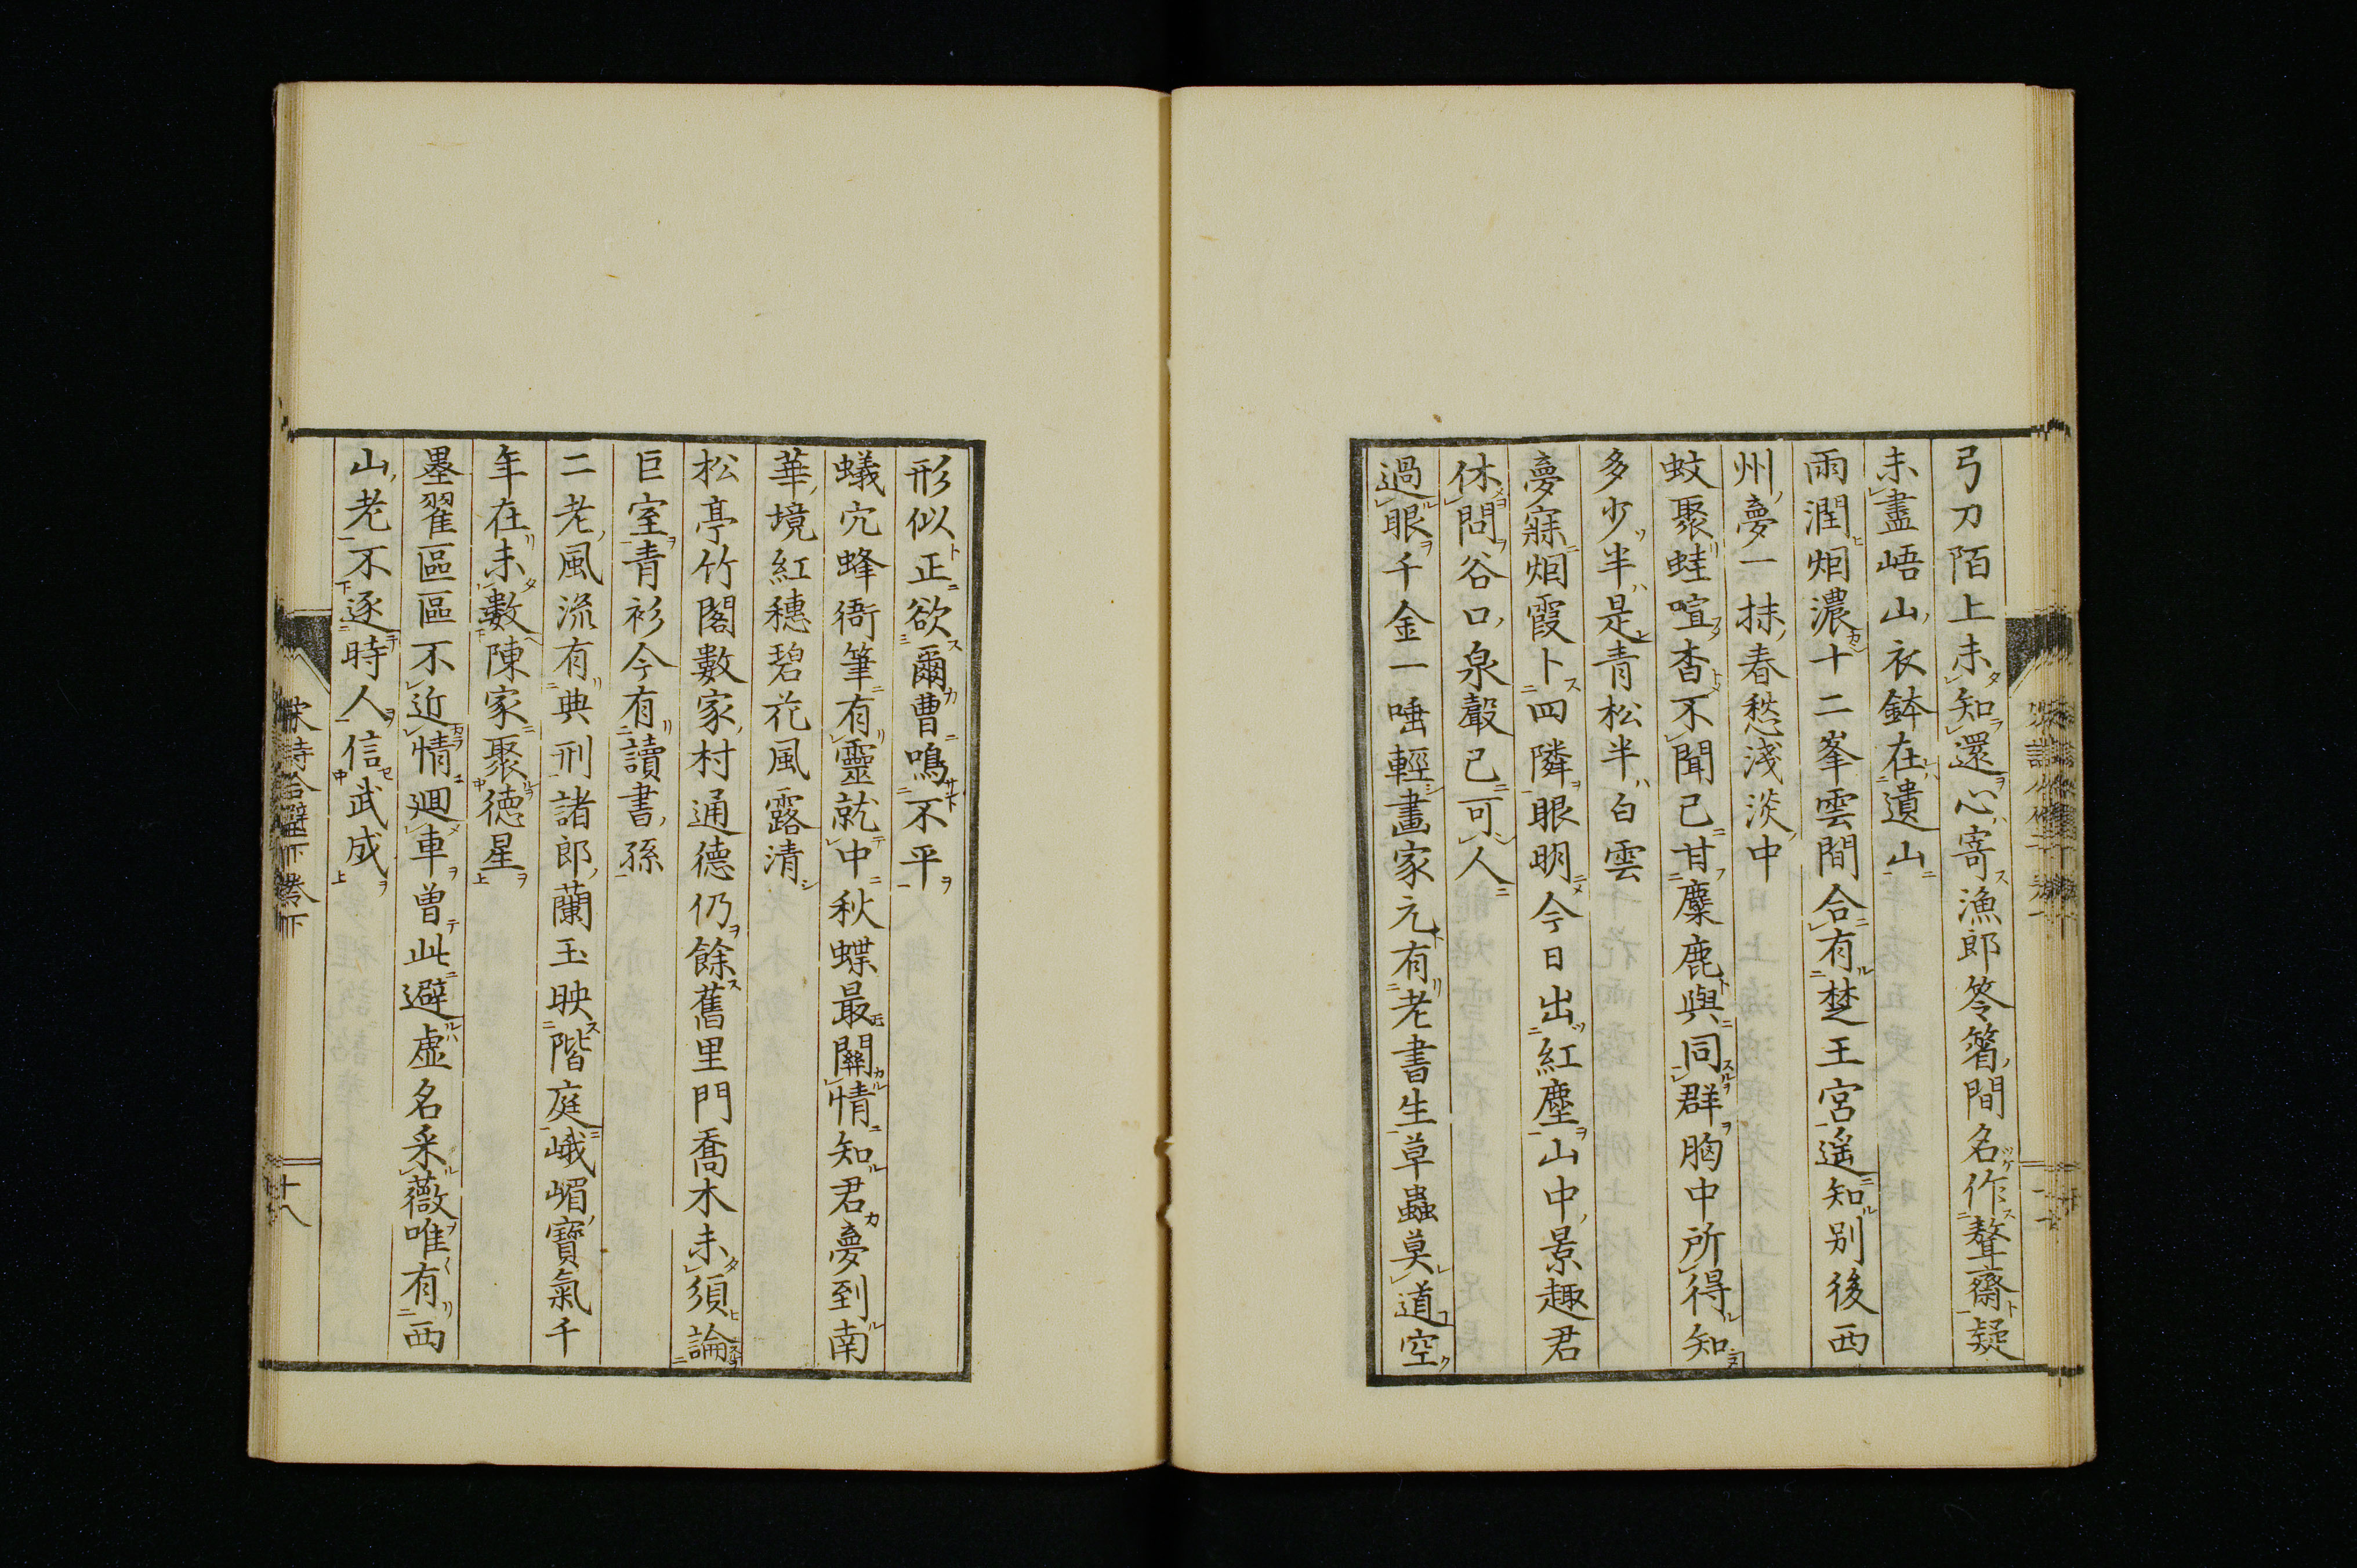 弓刀陌上未知還心寄漁郎笭箵間名作聱齋疑
未盡峿山衣鉢在遺山
雨潤烟濃十二峯雲間合有楚王宮遥知別後西
州夢一抹春愁淺淡中
蚊聚蛙喧杳不聞已甘麋鹿與同群胸中所得知
多少半是青松半白雲
夢寐烟霞卜四隣眼明今日出紅塵山中景趣君
休問谷口泉聲已可人
過眼千金一唾輕畫家元有老書生草蟲莫道空
形似正欲爾曹鳴不平
蟻穴蜂衙筆有靈就中秋蝶最關情知君夢到南
華境紅穗碧花風露清
松亭竹閣數家村通德仍餘舊里門喬木未須論
巨室青衫今有讀書孫
二老風流有典刑諸郎蘭玉映階庭峨嵋寶氣千
年在未數陳家聚德星
墨翟區區不近情廻車曽此避虛名采薇唯有西
山老不逐時人信武成
宋詩合璧下卷下
十八